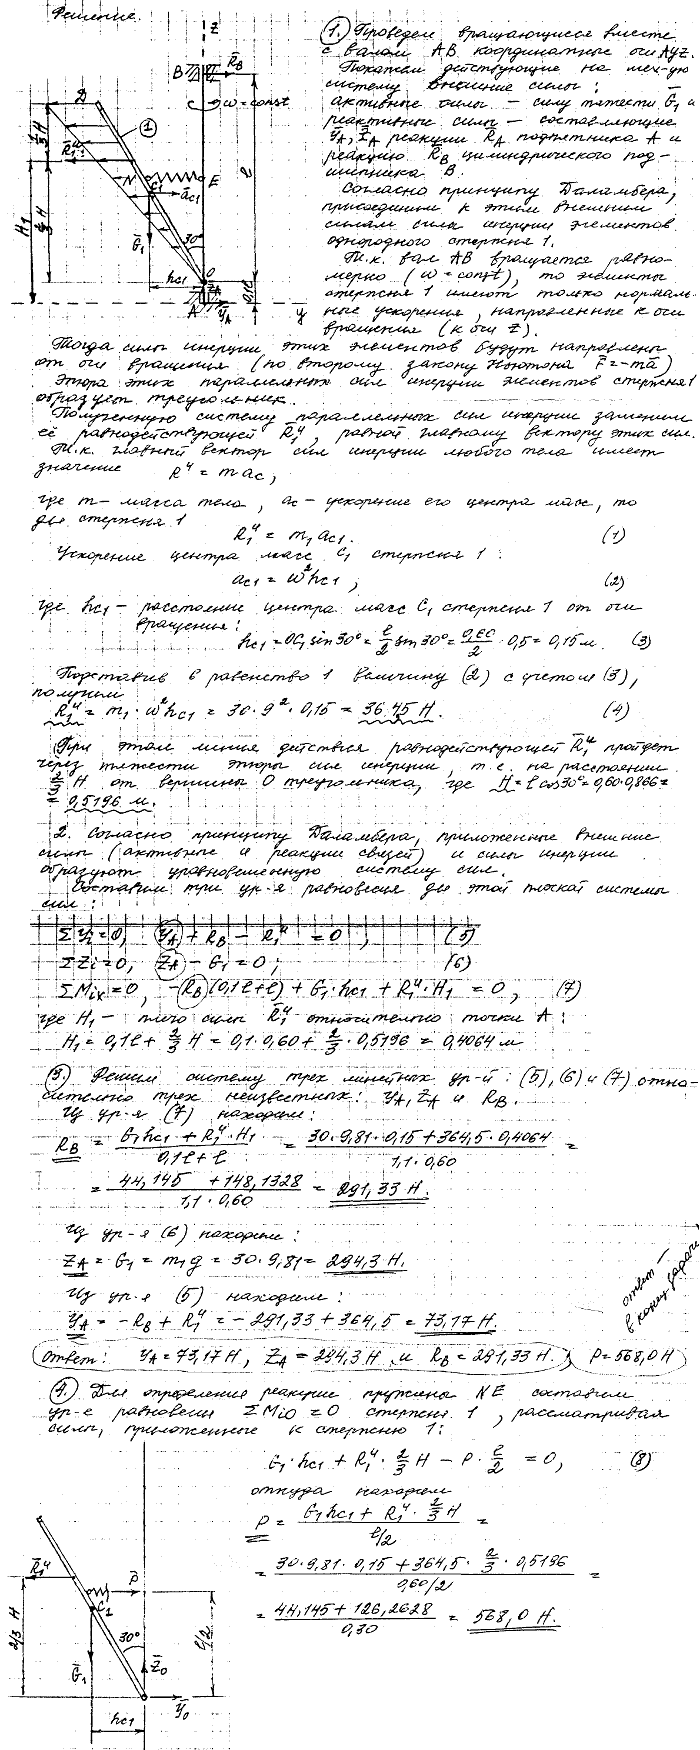 Решение.
1. Проведем вращающиеся вместе
с валом AB координатные оси Ayz.
Покажем действующие на мех-ую
систему внешние силы:
активные силы – силу тяжести G̅₁ и
реактивные силы – составляющие
Y̅A, Z̅A реакции R̅A подпятника A и
реакцию R̅B цилиндрического под-
шипника B.
Согласно принципу Даламбера,
присоединим к этим внешним
силам силы инерции элементов
однородного стержня 1.
Т.к. вал AB вращается равно-
мерно (ω = const), то элементы
стержня 1 имеют только нормаль-
ные ускорения, направленные к оси
вращения (к оси z).
z
B
R̅B
ω=const
D
1
⅓H
R̅₁ᵘ
N
E
C₁
a̅c₁
H₁
⅔H
G̅₁
30°
hc₁
O
Z̅A
A
Y̅A
y
ℓ
0,1ℓ
Тогда силы инерции этих элементов будут направлены
от оси вращения (по второму закону Ньютона F̅=-ma̅)
Эпюра этих параллельных сил инерции элементов стержня 1
образует треугольник.
Полученную систему параллельных сил инерции заменим
её равнодействующей R̅₁ᵘ, равной главному вектору этих сил.
Т.к. главный вектор сил инерции любого тела имеет
значение Rᵘ = m ac,
где m – масса тела, ac – ускорение его центра масс, то
для стержня 1
R₁ᵘ = m₁ ac₁. (1)
Ускорение центра масс C₁ стержня 1:
ac₁ = ω²hc₁, (2)
где hc₁ – расстояние центра масс C₁ стержня 1 от оси
вращения:
hc₁ = OC₁ sin 30° = ℓ/2 sin 30° = 0,60/2 · 0,5 = 0,15 м. (3)
Подставив в равенство 1 величину (2) с учетом (3),
получим
R₁ᵘ = m₁ · ω²hc₁ = 30 · 9² · 0,15 = 36.45 Н. (4)
При этом линия действия равнодействующей R̅₁ᵘ пройдет
через тяжести эпюры сил инерции, т.е. на расстоянии
⅔ H от вершины O треугольника, где H = ℓ cos 30° = 0,60·0,866 =
= 0,5196 м.
2. Согласно принципу Даламбера, приложенные внешние
силы (активные и реакции связей) и силы инерции
образуют уравновешенную систему сил.
Составим три ур-я равновесия для этой плоской системы
сил:
ΣYi=0, YA + RB – R₁ᵘ = 0, (5)
ΣZi=0, ZA – G₁ = 0; (6)
ΣMix = 0, –RB(0,1ℓ+ℓ) + G₁·hc₁ + R₁ᵘ·H₁ = 0, (7)
где H₁ – плечо силы R̅₁ᵘ относительно точки A:
H₁ = 0,1ℓ + ⅔ H = 0,1·0,60 + ⅔ · 0,5196 = 0,4064 м
3. Решим систему трех линейных ур-й: (5), (6) и (7) отно-
сительно трех неизвестных: YA, ZA и RB.
Из ур-я (7) находим:
RB = (G₁hc₁ + R₁ᵘ·H₁)/(0,1ℓ+ℓ) = (30·9,81·0,15 + 364,5·0,4064)/(1,1·0,60) =
= (44,145 + 148,1328)/(1,1·0,60) = 291,33 Н.
Из ур-я (6) находим:
ZA = G₁ = m₁g = 30·9,81 = 294,3 Н.
Из ур-я (5) находим:
YA = –RB + R₁ᵘ = –291,33 + 364,5 = 73,17 Н.
ответ –
в конец задачи
Ответ: YA = 73,17 Н, ZA = 294,3 Н и RB = 291,33 Н., P = 568,0 Н
4. Для определения реакции пружины NE составим
ур-е равновесия ΣMio = 0 стержня 1, рассматривая
силы, приложенные к стержню 1:
G₁·hc₁ + R₁ᵘ·⅔ H – P·ℓ/2 = 0, (8)
откуда находим
P = (G₁hc₁ + R₁ᵘ·⅔ H)/(ℓ/2) =
= (30·9,81·0,15 + 364,5·⅔·0,5196)/(0,60/2) =
= (44,145 + 126,2628)/0,30 = 568,0 Н.
R̅₁ᵘ
P̅
C₁
2/3 H
30°
ℓ/2
G̅₁
Z̅o
Y̅o
hc₁